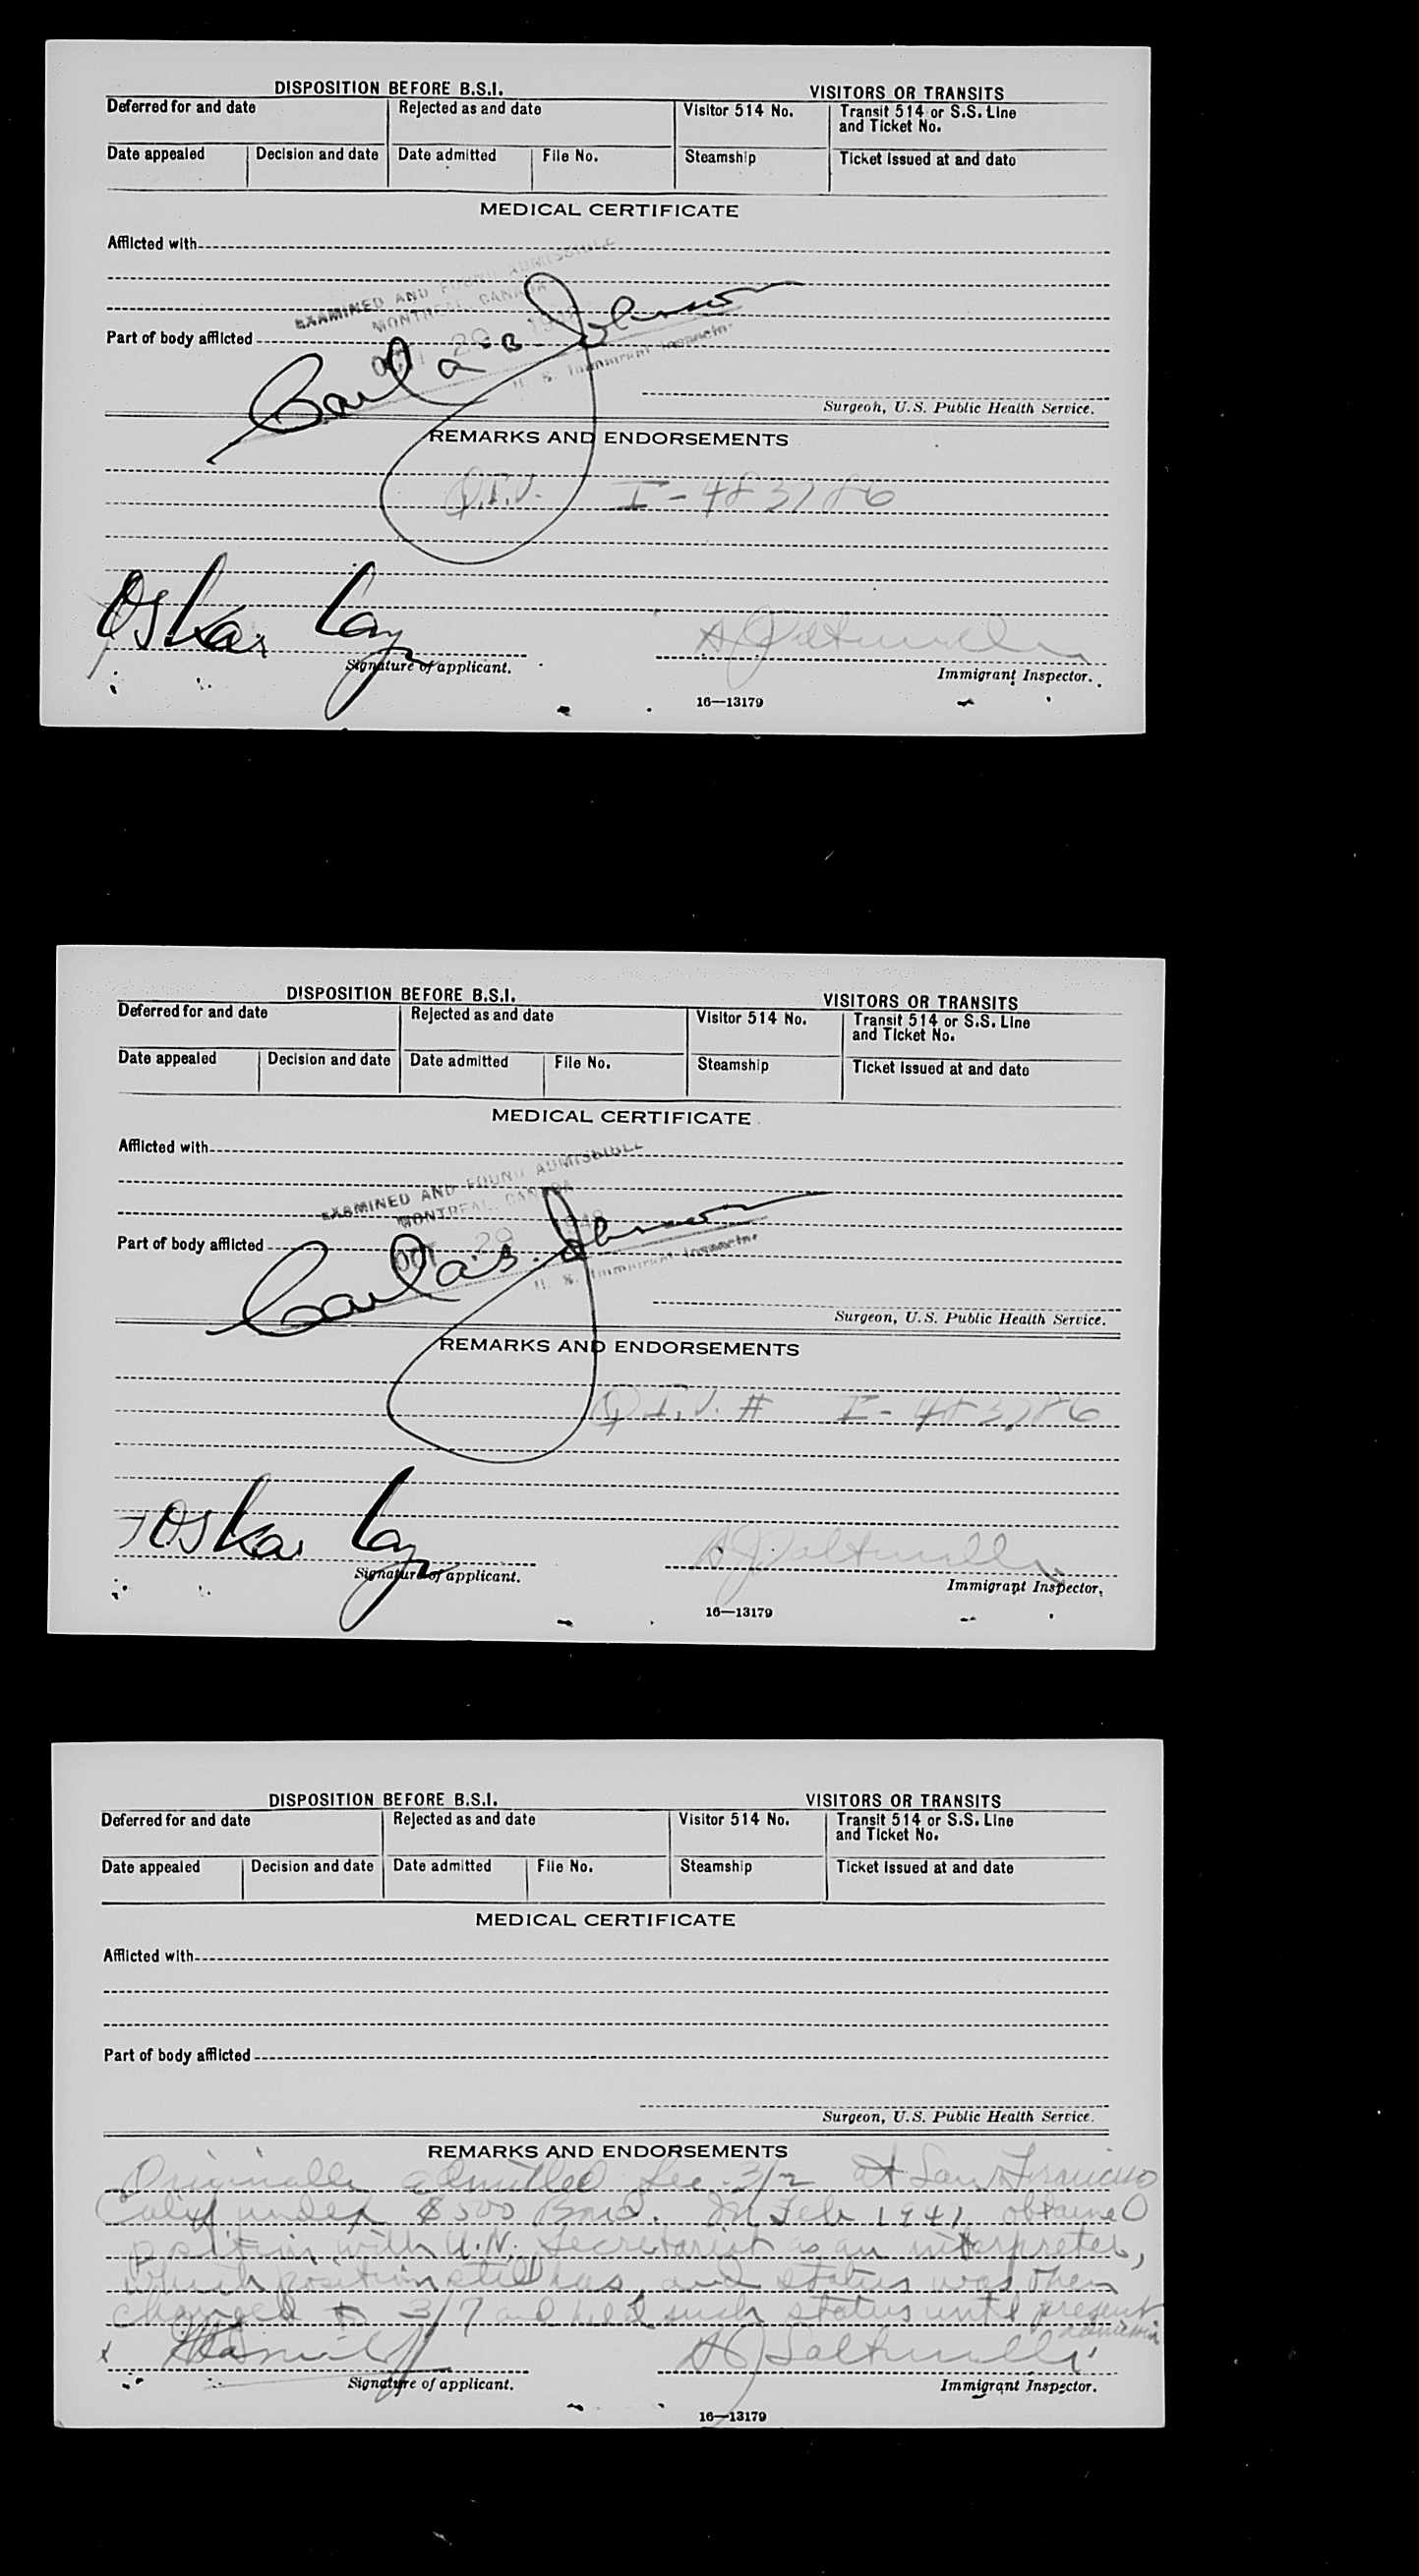 DISPOSITION BEFORE B.S.I. VISITORS OR TRANSITS
Deferred for and date Rejected as and date Visitor 514 No. Transit 514 or S.S. Line
and Ticket No.
Date appealed Decision and date Date admitted File No. Steamship Ticket issued at and date
MEDICAL CERTIFICATE
Afflicted with
EXAMINED AND FOUND ADMISSIBLE
MONTREAL, CANADA
Part of body afflicted
OCT 29
U. S. Immigrant Inspector
Surgeon, U.S. Public Health Service.
REMARKS AND ENDORSEMENTS
Q.I.V. I-483786
Oskar
Signature of applicant.
Immigrant Inspector.
16—13179
DISPOSITION BEFORE B.S.I. VISITORS OR TRANSITS
Deferred for and date Rejected as and date Visitor 514 No. Transit 514 or S.S. Line
and Ticket No.
Date appealed Decision and date Date admitted File No. Steamship Ticket issued at and date
MEDICAL CERTIFICATE
Afflicted with
EXAMINED AND FOUND ADMISSIBLE
MONTREAL, CANADA
Part of body afflicted
OCT 29
U. S. Immigrant Inspector
Surgeon, U.S. Public Health Service.
REMARKS AND ENDORSEMENTS
Q.I.V. # I-483786
Oskar
Signature of applicant.
Immigrant Inspector.
16—13179
DISPOSITION BEFORE B.S.I. VISITORS OR TRANSITS
Deferred for and date Rejected as and date Visitor 514 No. Transit 514 or S.S. Line
and Ticket No.
Date appealed Decision and date Date admitted File No. Steamship Ticket issued at and date
MEDICAL CERTIFICATE
Afflicted with
Part of body afflicted
Surgeon, U.S. Public Health Service.
REMARKS AND ENDORSEMENTS
Originally admitted Sec. 3/2 at San Francisco
Calif under $500 Bond. In Feb 1947 obtained
position with U.N. Secretariat as an interpreter,
which position still has, and status was then
changed to 3/7 and held such status until present
admission
Signature of applicant.
Immigrant Inspector.
16—13179